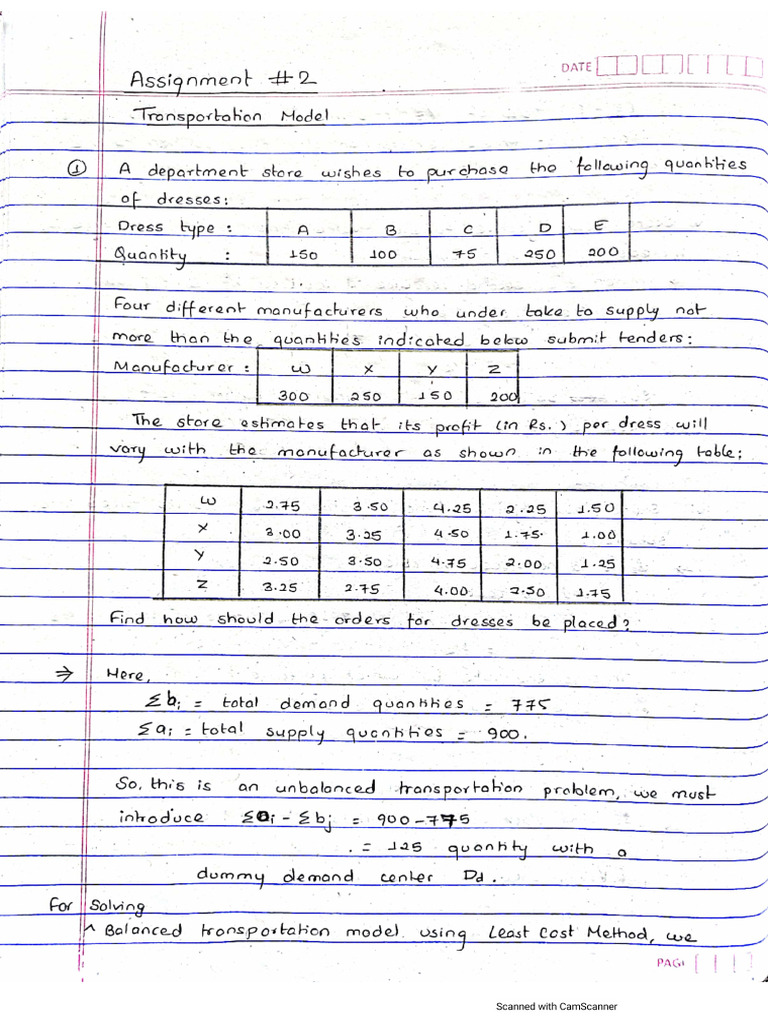 DATE
Assignment #2
Transportation Model
① A department store wishes to purchase the following quantities
of dresses:
Dress type : A B C D E
Quantity : 150 100 75 250 200
Four different manufacturers who under take to supply not
more than the quantities indicated below submit tenders:
Manufacturer : W X Y Z
300 250 150 200
The store estimates that its profit (in Rs.) per dress will
vary with the manufacturer as shown in the following table;
W 2.75 3.50 4.25 2.25 1.50
X 3.00 3.25 4.50 1.75 1.00
Y 2.50 3.50 4.75 2.00 1.25
Z 3.25 2.75 4.00 2.50 1.75
Find how should the orders for dresses be placed?
⇒ Here,
Σbj = total demand quantities = 775
Σai = total supply quantities = 900.
So, this is an unbalanced transportation problem, we must
introduce Σai - Σbj = 900-775
= 125 quantity with a
dummy demand center Dd.
For Solving
^ Balanced transportation model using Least Cost Method, we
PAGE
Scanned with CamScanner